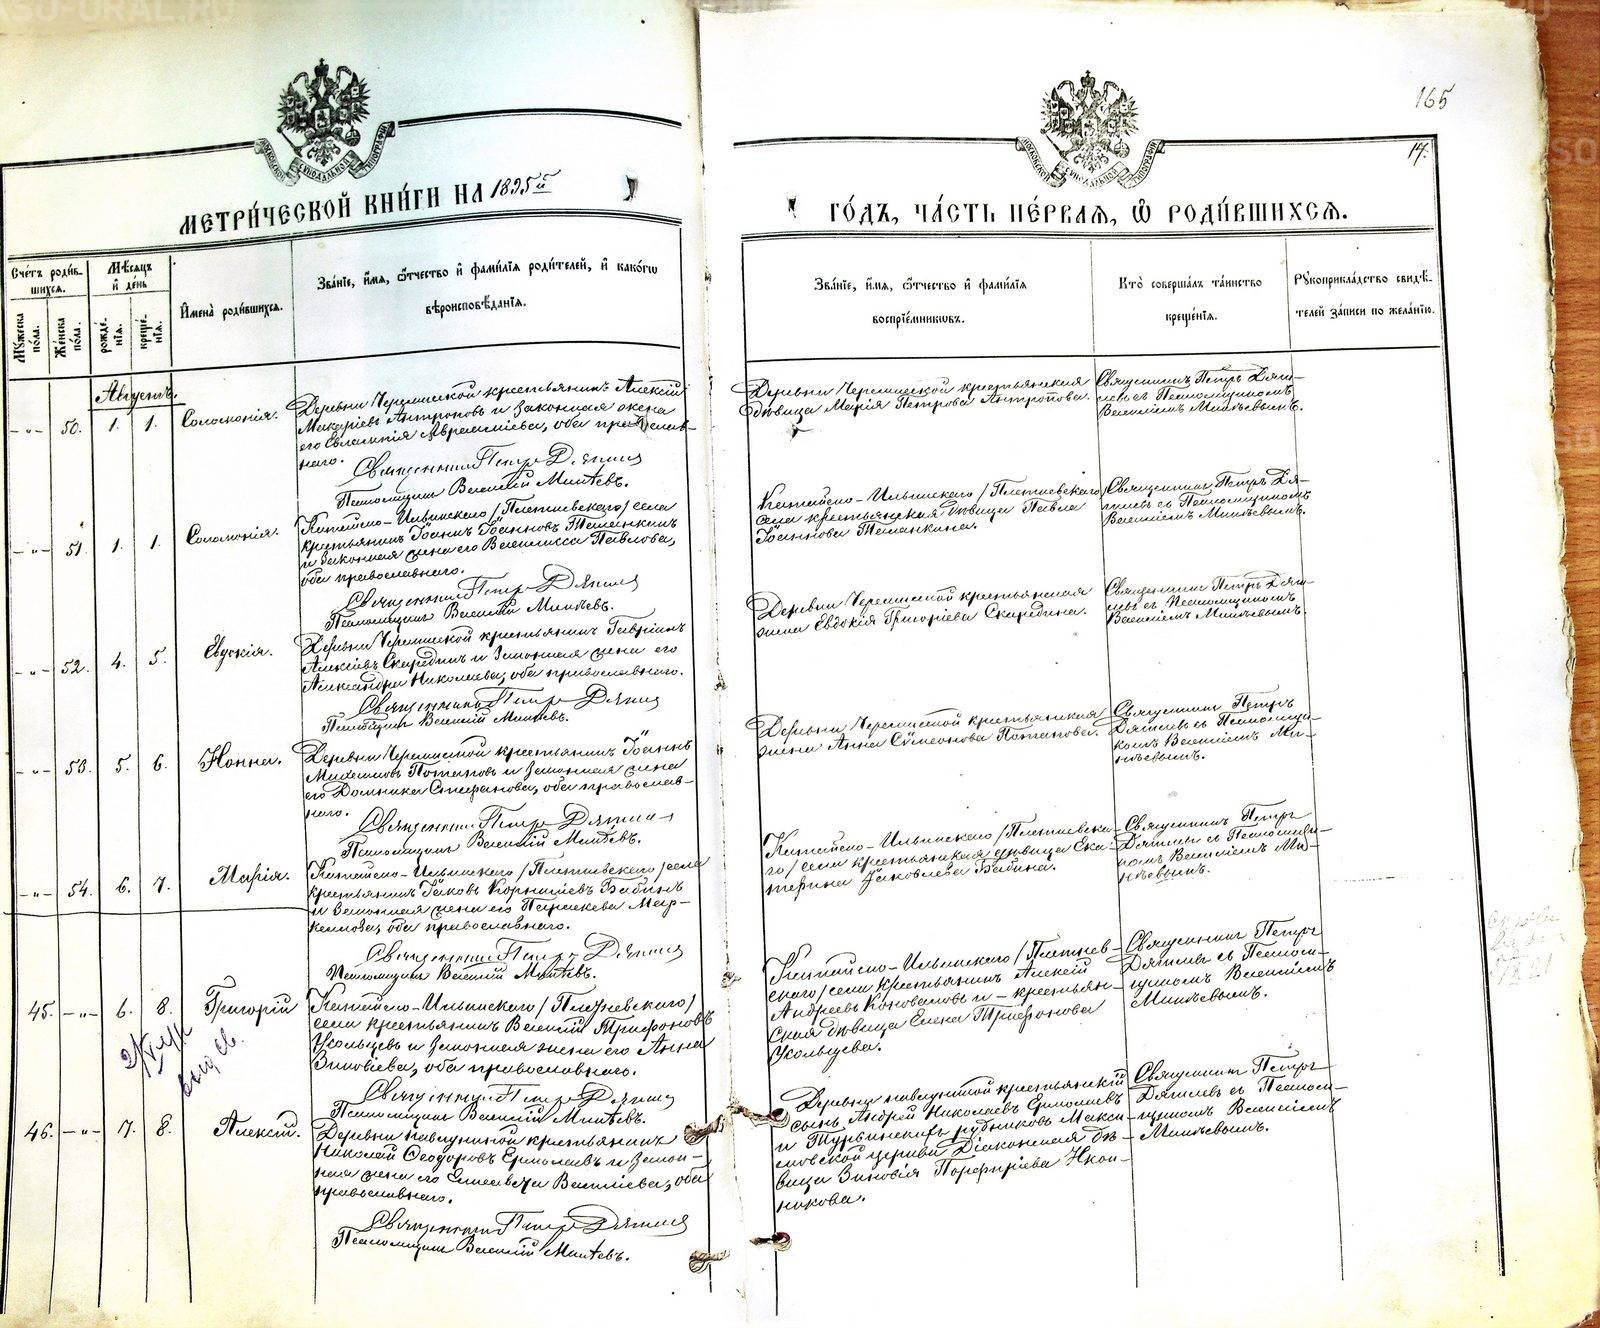 165
17.
МЕТРИ́ЧЕСКОЙ КНИ́ГИ НА 1895й
ГО́ДЪ, ЧА́СТЬ ПЕ́РВАЯ, Ѡ РОДИ́ВШИХСЯ.
Сче́тъ роди́в-
шихся.
Му́жеска по́ла.
Же́нска по́ла.
Мѣ́сяцъ и день
рожде́-нія.
креще́-нія.
Имена̀ роди́вшихся.
Зва́ніе, и́мя, ѻ́тчество и фами́лія роди́телей, и како́гѡ
вѣроисповѣ́данія.
Зва́ніе, и́мя, ѻ́тчество и фами́лія
воспріе́мниковъ.
Кто̀ соверша́лъ та́инство
креще́нія.
Рукоприкла́дство свидѣ́-
телей за́писи по жела́нію.
Августъ.
-"- 50. 1. 1. Соломонія.
Деревни Черемисской крестьянинъ Алексій
Макаріевъ Антроповъ и законная жена
его Евлампія Авраамiева, оба православ-
наго.
Священникъ Петръ Дягилев
Псаломщикъ Василій Минѣевъ.
Деревни Черемисской крестьянская
дѣвица Марія Петрова Антропова.
Священникъ Петръ Дяги-
левъ съ Псаломщикомъ
Василіемъ Минѣевымъ.
-"- 51. 1. 1. Соломонія.
Катайско-Ильинскаго /Плетневскаго/ села
крестьянинъ Іоаннъ Іоанновъ
и законная жена его Василисса Павлова,
оба православнаго.
Священникъ Петръ Дягилев
Псаломщикъ Василій Минѣевъ.
Катайско-Ильинскаго /Плетневскаго/
села крестьянская дѣвица Павла
Іоаннова
Священникъ Петръ Дя-
гилевъ съ Псаломщикомъ
Василіемъ Минѣевымъ.
-"- 52. 4. 5. Евдокія.
Деревни Черемисской крестьянинъ Гавріилъ
Алексіевъ Скарединъ и законная жена его
Александра Николаева, оба православнаго.
Священникъ Петръ Дягилев
Псаломщикъ Василій Минѣевъ.
Деревни Черемисской крестьянская
жена Евдокія Григоріева Скаредина.
Священникъ Петръ Дяги-
левъ съ Псаломщикомъ
Василіемъ Минѣевымъ.
-"- 53. 5. 6. Нонна.
Деревни Черемисской крестьянинъ Іоаннъ
Потаповъ и законная жена
его Домника Стефанова, оба православ-
наго.
Священникъ Петръ Дягилев
Псаломщикъ Василій Минѣевъ.
Деревни Черемисской крестьянская
жена Анна Сѵмеонова Потапова.
Священникъ Петръ
Дягилевъ съ Псаломщи-
комъ Василіемъ Ми-
нѣевымъ.
-"- 54. 6. 7. Марія.
Катайско-Ильинскаго /Плетневскаго/ села
крестьянинъ Іаковъ Корниліевъ Бабинъ
и законная жена его Параскева Мар-
келлова, оба православнаго.
Священникъ Петръ Дягилев
Псаломщикъ Василій Минѣевъ.
Катайско-Ильинскаго /Плетневска-
го/ села крестьянская дѣвица Ека-
терина Іаковлева Бабина.
Священникъ Петръ
Дягилевъ съ Псаломщи-
комъ Василіемъ Ми-
нѣевымъ.
45. -"- 6. 8. Григорій
Катайско-Ильинскаго /Плетневскаго/
села крестьянинъ Василій Трифоновъ
Усольцевъ и законная жена его Анна
Зиновіева, оба православнаго.
Священникъ Петръ Дягилев
Псаломщикъ Василій Минѣевъ.
Катайско-Ильинскаго /Плетнев-
скаго/ села крестьянинъ Алексій
Андреевъ Коноваловъ и - крестьян-
ская дѣвица Елена Трифонова
Усольцева.
Священникъ Петръ
Дягилевъ съ Псалом-
щикомъ Василіемъ
Минѣевымъ.
46. -"- 7. 8. Алексій.
Деревни крестьянинъ
Николай Ѳеодоровъ Ермолаевъ и закон-
ная жена его Елисавета Василіева, оба
православнаго.
Священникъ Петръ Дягилев
Псаломщикъ Василій Минѣевъ.
Деревни крестьянскій
сынъ Андрей Николаевъ Ермолаевъ
и Турьинскихъ рудниковъ Макси-
мовской церкви Діаконская дѣ-
вица Зиновія Порфиріева Икон-
никова.
Священникъ Петръ
Дягилевъ съ Псалом-
щикомъ Василіемъ
Минѣевымъ.